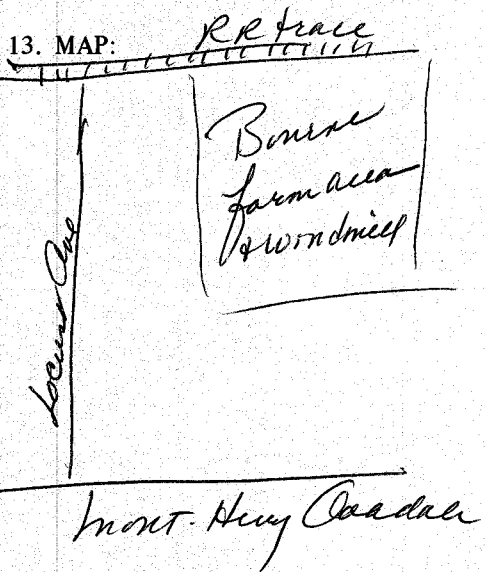 13. MAP:
RR trace
Bourne
farm area
+ windmill
Locust Ave
Mont. Hwy Oakdale